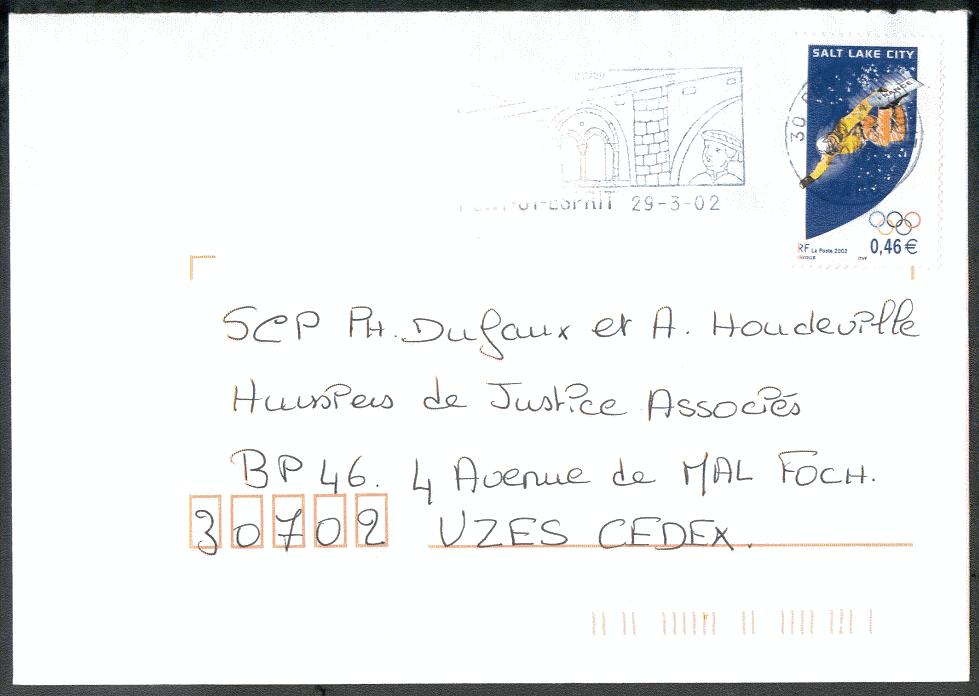 SALT LAKE CITY
FRANCE
30
ESPRIT 29-3-02
RF La Poste 2002 0,46 €
SCP PH. Dufaux et A. Houdeville
Huissiers de Justice Associés
BP 46. 4 Avenue de MAL FOCH.
30702 UZES CEDEX.